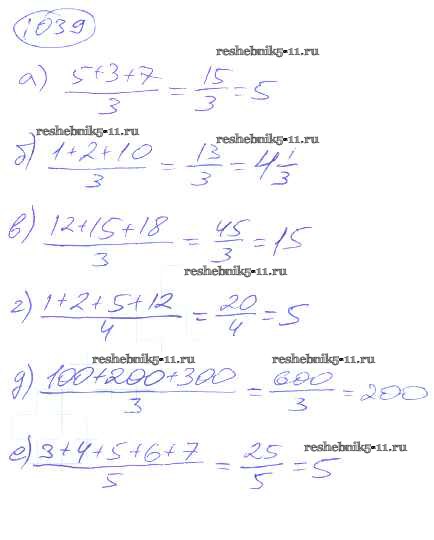 1039
reshebnik5-11.ru
а) (5+3+7)/3 = 15/3 = 5
reshebnik5-11.ru reshebnik5-11.ru
б) (1+2+10)/3 = 13/3 = 4 1/3
в) (12+15+18)/3 = 45/3 = 15
reshebnik5-11.ru
г) (1+2+5+12)/4 = 20/4 = 5
reshebnik5-11.ru reshebnik5-11.ru
д) (100+200+300)/3 = 600/3 = 200
е) (3+4+5+6+7)/5 = 25/5 = 5
reshebnik5-11.ru